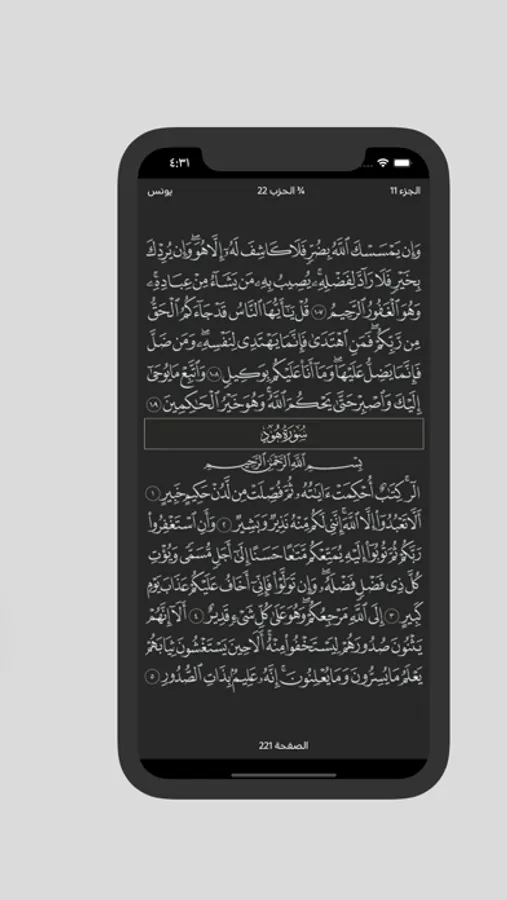 ٤:٣١
الجزء 11 ¾ الحزب 22 يونس
وَإِن يَمْسَسْكَ ٱللَّهُ بِضُرٍّ فَلَا كَاشِفَ لَهُۥٓ إِلَّا هُوَۖ وَإِن يُرِدْكَ
بِخَيْرٍ فَلَا رَآدَّ لِفَضْلِهِۦۚ يُصِيبُ بِهِۦ مَن يَشَآءُ مِنْ عِبَادِهِۦۚ
وَهُوَ ٱلْغَفُورُ ٱلرَّحِيمُ ١٠٧ قُلْ يَٰٓأَيُّهَا ٱلنَّاسُ قَدْ جَآءَكُمُ ٱلْحَقُّ
مِن رَّبِّكُمْۖ فَمَنِ ٱهْتَدَىٰ فَإِنَّمَا يَهْتَدِى لِنَفْسِهِۦۖ وَمَن ضَلَّ
فَإِنَّمَا يَضِلُّ عَلَيْهَاۖ وَمَآ أَنَا۠ عَلَيْكُم بِوَكِيلٍ ١٠٨ وَٱتَّبِعْ مَا يُوحَىٰٓ
إِلَيْكَ وَٱصْبِرْ حَتَّىٰ يَحْكُمَ ٱللَّهُۚ وَهُوَ خَيْرُ ٱلْحَٰكِمِينَ ١٠٩
سُورَةُ هُودٍ
بِسْمِ ٱللَّهِ ٱلرَّحْمَٰنِ ٱلرَّحِيمِ
الٓرۚ كِتَٰبٌ أُحْكِمَتْ ءَايَٰتُهُۥ ثُمَّ فُصِّلَتْ مِن لَّدُنْ حَكِيمٍ خَبِيرٍ ١
أَلَّا تَعْبُدُوٓا۟ إِلَّا ٱللَّهَۚ إِنَّنِى لَكُم مِّنْهُ نَذِيرٌ وَبَشِيرٌ ٢ وَأَنِ ٱسْتَغْفِرُوا۟
رَبَّكُمْ ثُمَّ تُوبُوٓا۟ إِلَيْهِ يُمَتِّعْكُم مَّتَٰعًا حَسَنًا إِلَىٰٓ أَجَلٍ مُّسَمًّى وَيُؤْتِ
كُلَّ ذِى فَضْلٍ فَضْلَهُۥۖ وَإِن تَوَلَّوْا۟ فَإِنِّىٓ أَخَافُ عَلَيْكُمْ عَذَابَ يَوْمٍ
كَبِيرٍ ٣ إِلَى ٱللَّهِ مَرْجِعُكُمْۖ وَهُوَ عَلَىٰ كُلِّ شَىْءٍ قَدِيرٌ ٤ أَلَآ إِنَّهُمْ
يَثْنُونَ صُدُورَهُمْ لِيَسْتَخْفُوا۟ مِنْهُۚ أَلَا حِينَ يَسْتَغْشُونَ ثِيَابَهُمْ
يَعْلَمُ مَا يُسِرُّونَ وَمَا يُعْلِنُونَۚ إِنَّهُۥ عَلِيمٌۢ بِذَاتِ ٱلصُّدُورِ ٥
الصفحة 221